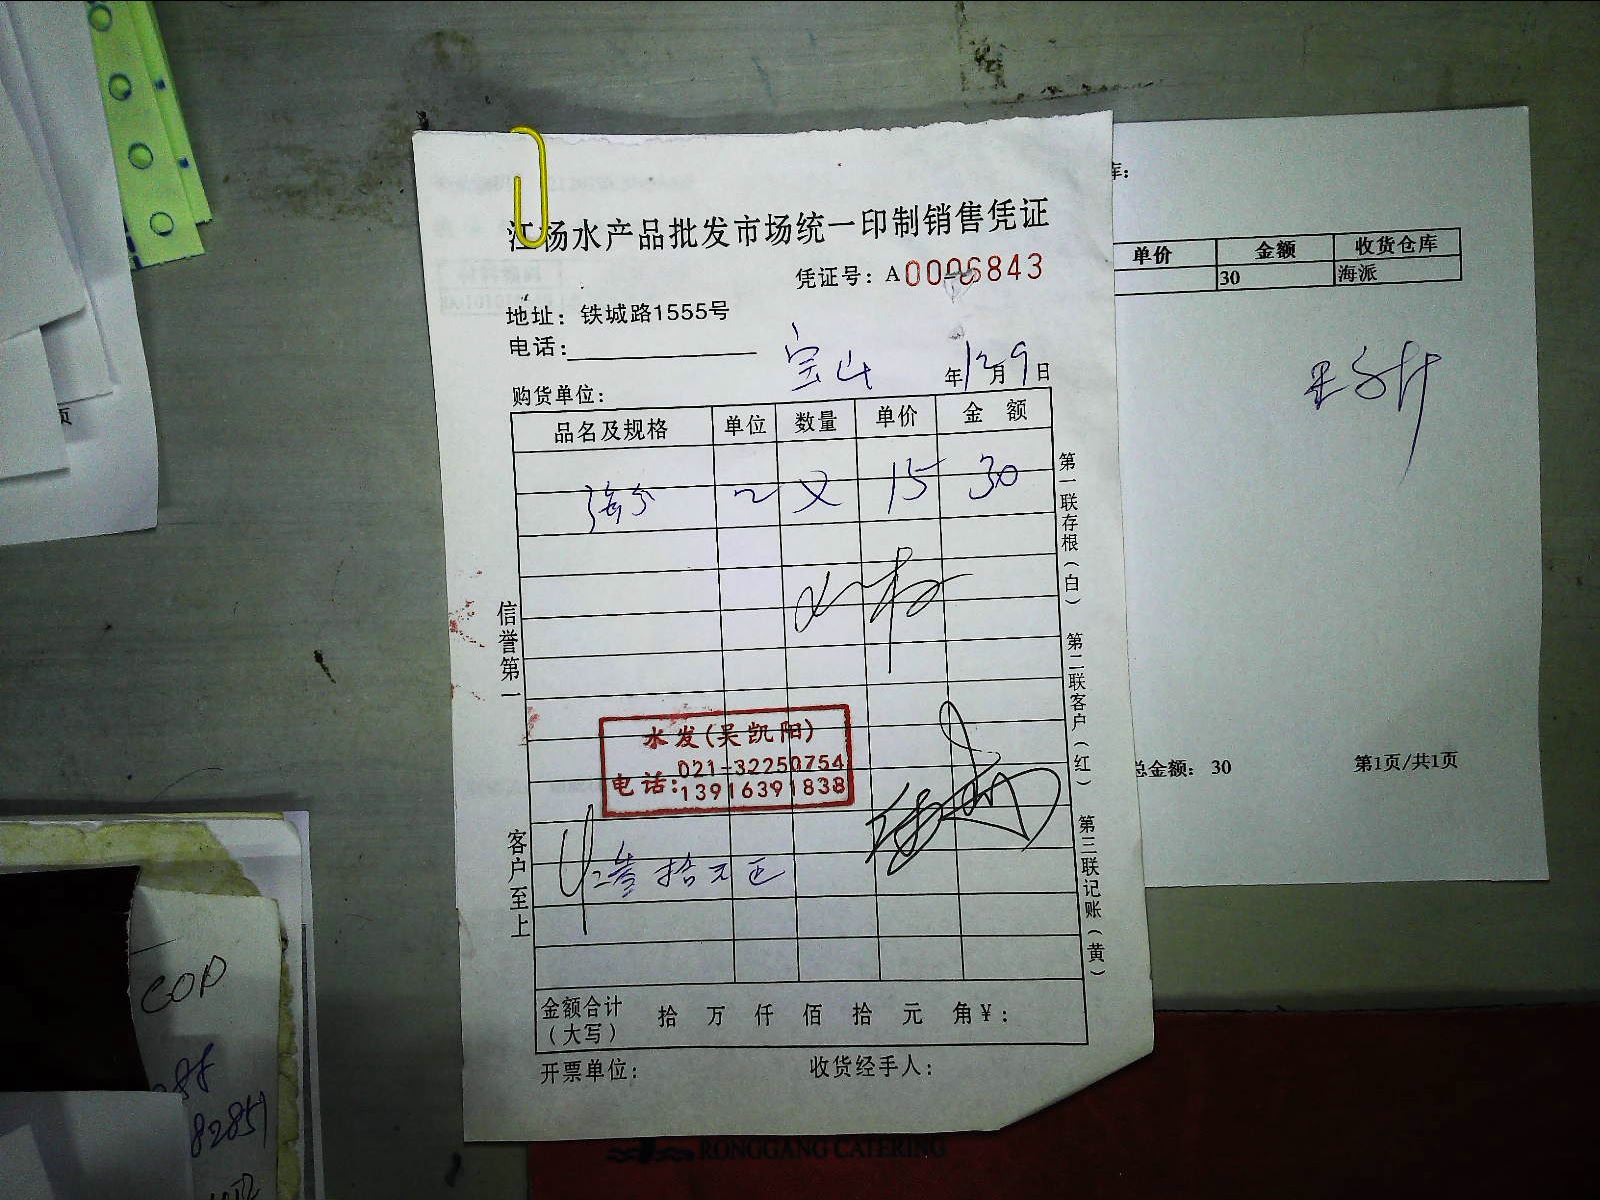 江杨水产品批发市场统一印制销售凭证
凭证号：A0006843
地址：铁城路1555号
电话：
宝山 年12月9日
购货单位：
品名及规格 单位 数量 单价 金 额
15 30
水发(吴凯阳)
电话:021-32250754
13916391838
叁拾元正
金额合计（大写） 拾 万 仟 佰 拾 元 角￥：
开票单位： 收货经手人：
信誉第一
客户至上
第一联存根（白）
第二联客户（红）
第三联记账（黄）
库：
单价 金额 收货仓库
30 海派
总金额： 30 第1页/共1页
页
COD
82851
RONGGANG CATERING